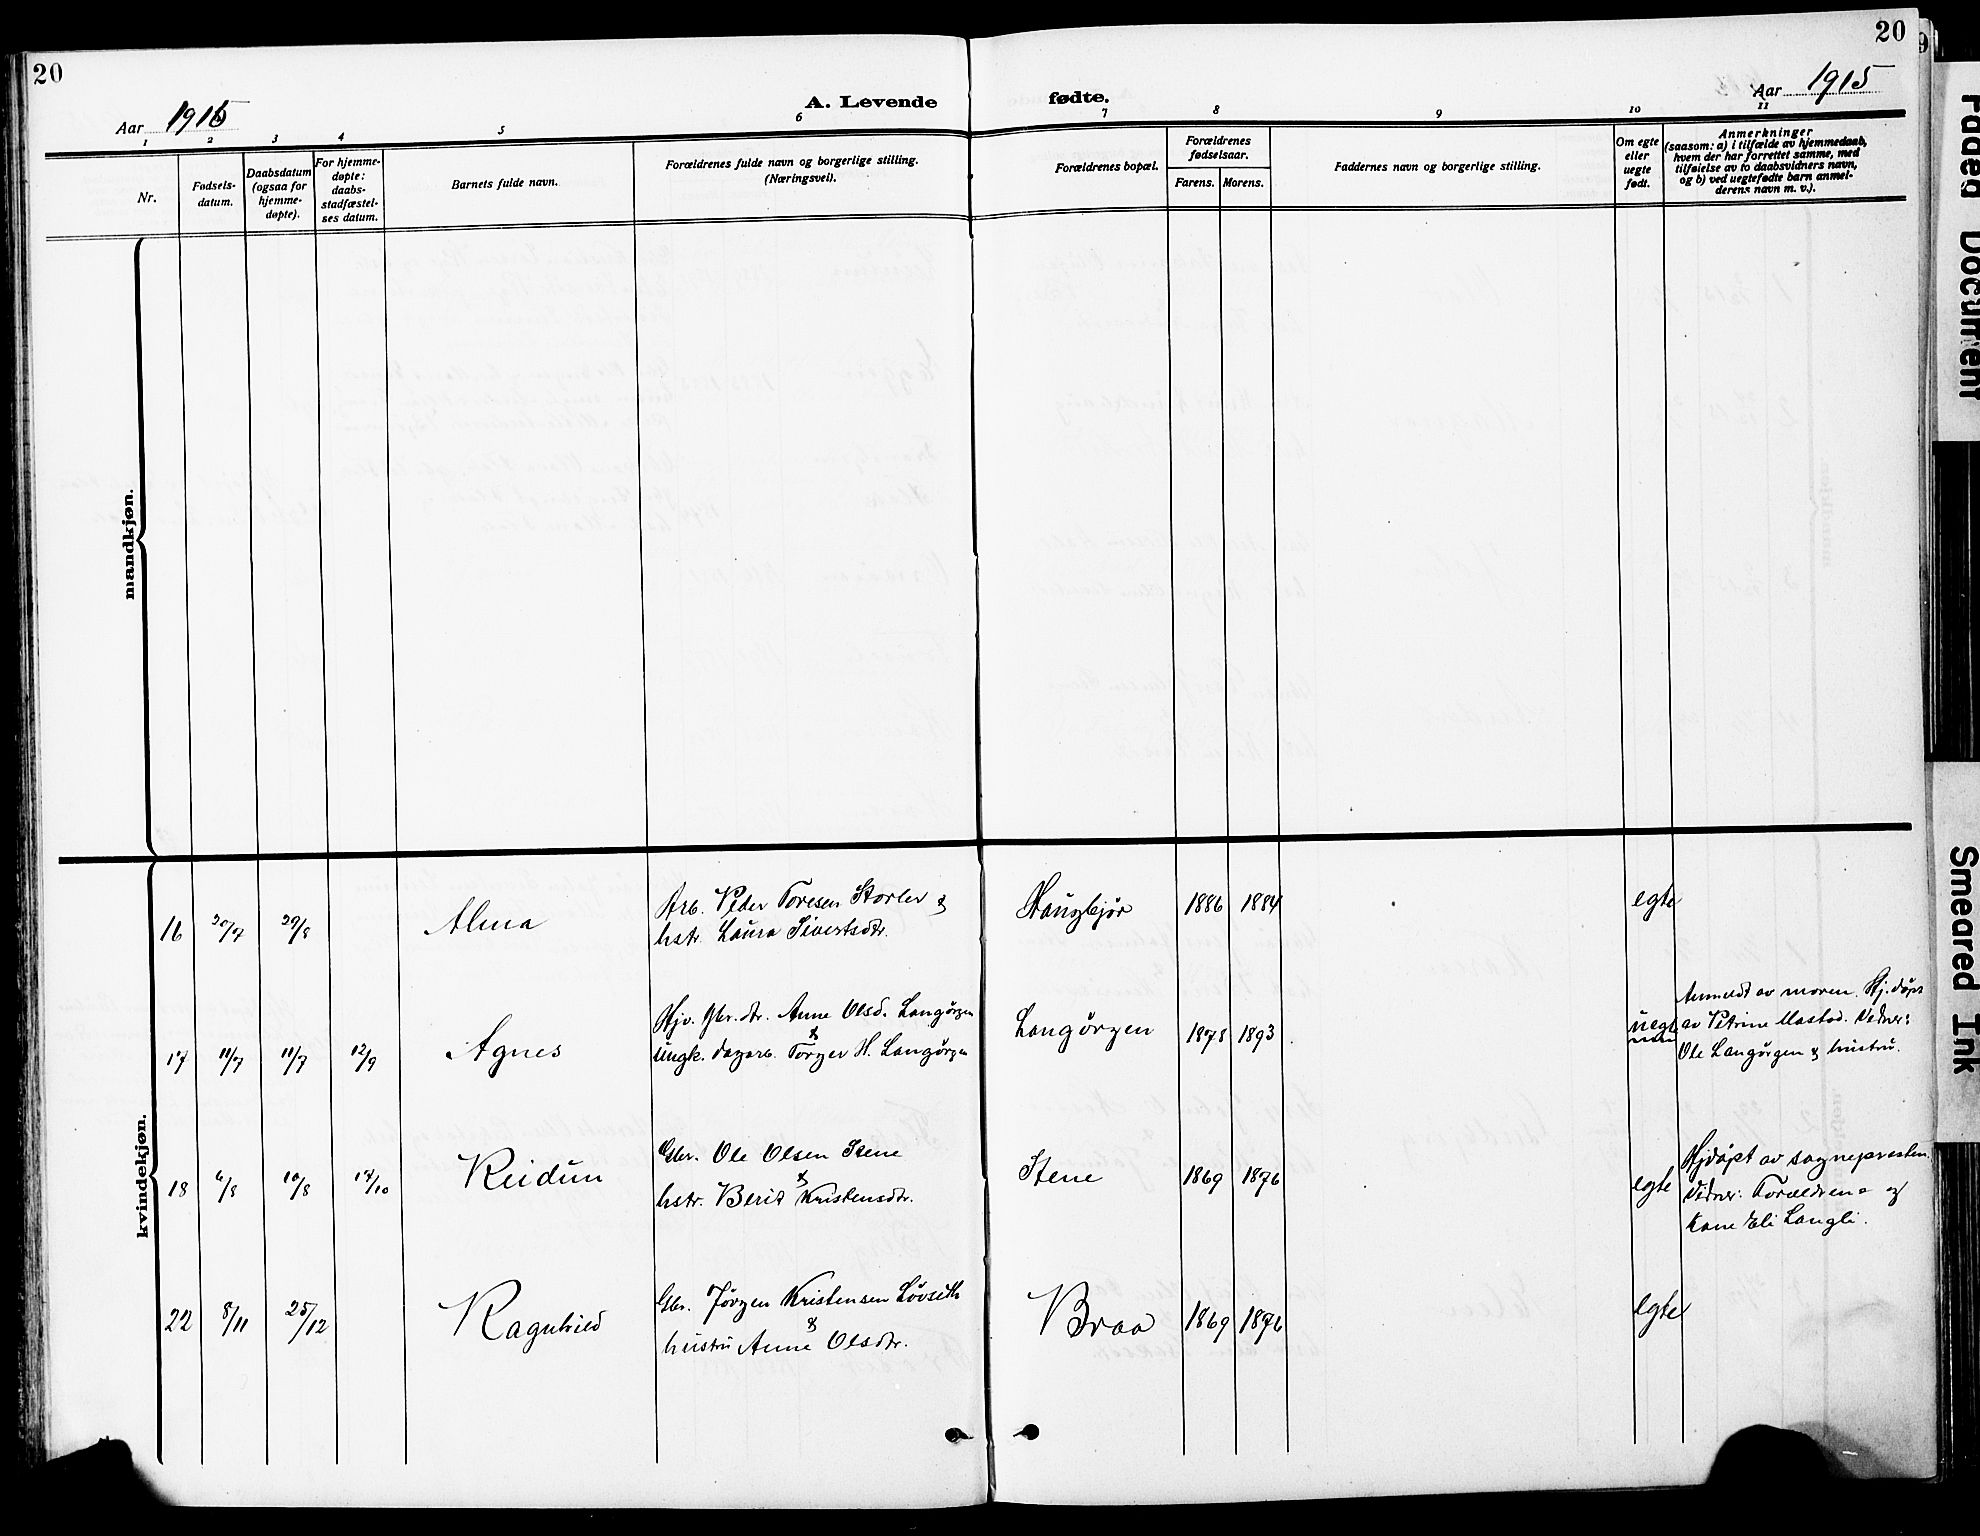 20
20
Aar 1915
A. Levende fødte.
Aar 1915
1 2 3 4 5 6 7 8 9 10 11
Nr.
Fødsels-
datum.
Daabsdatum
(ogsaa for
hjemme-
døpte).
For hjemme-
døpte:
daabs-
stadfæstel-
ses datum.
Barnets fulde navn.
Forældrenes fulde navn og borgerlige stilling.
(Næringsvei).
Forældrenes bopæl.
Forældrenes
fødselsaar.
Farens. Morens.
Faddernes navn og borgerlige stilling.
Om egte
eller
uegte
født.
Anmerkninger
(saasom: a) i tilfælde av hjemmedaab,
hvem der har forrettet samme, med
tilføielse av to daabsvidners navn,
og b) ved uegtefødte barn anmel-
derens navn m. v.).
mandkjøn.
kvindekjøn.
16 20/7 29/8 Alma
Arb. Peder Toresen Storler &
hstr. Laura Sivertsdtr.
Haugbjør 1886 1884 egte
17 11/7 11/7 12/9 Agnes
Hjv. Gbr.dtr. Anne Olsd. Langørgen
&
Ungk. dagarb. Torger H. Langørgen
Langørgen 1878 1893 uegte
Anmeldt av moren. Hj.døpt
av Petrine Mostad. Vidner:
Ole Langørgen & hustru.
18 6/8 10/8 17/10 Reidun
Gbr. Ole Olsen Stene
&
hstr. Berit Kristensdtr.
Stene 1869 1876 egte
Hjdøpt av sognepresten.
Vidner: Forældrene og
Kone Eli Langli.
22 8/11 25/12 Ragnhild
Gbr. Jørgen Kristensen Løvseth
&
hustru Anne Olsdtr.
Braa 1869 1876 egte
Faded Document
Smeared Ink